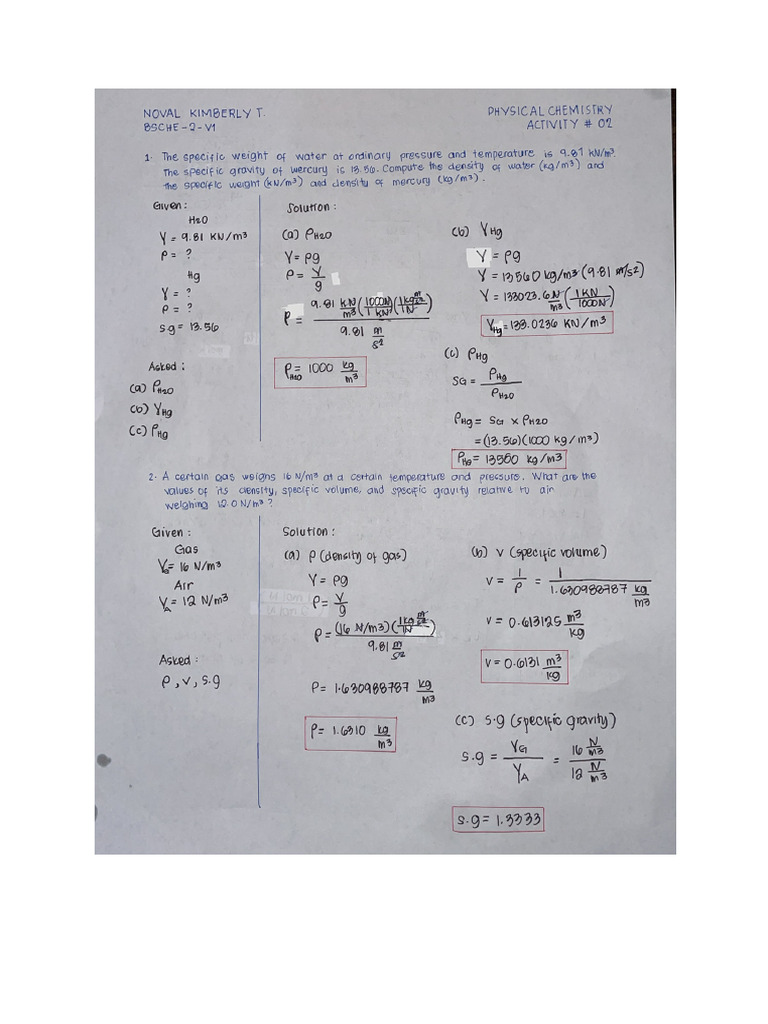 NOVAL KIMBERLY T.
BSCHE-2-V1
PHYSICAL CHEMISTRY
ACTIVITY # 02
1. The specific weight of water at ordinary pressure and temperature is 9.81 kN/m³.
The specific gravity of mercury is 13.56. Compute the density of water (kg/m³) and
the specific weight (kN/m³) and density of mercury (kg/m³).
Given:
H2O
γ = 9.81 KN/m³
ρ = ?
Hg
γ = ?
ρ = ?
s.g = 13.56
Asked:
(a) ρH2O
(b) γHg
(c) ρHg
Solution:
(a) ρH2O
γ = ρg
ρ = γ/g
ρ = 9.81 kN/m³ (1000N/1 KN) (1 kg m/s²/1N) / 9.81 m/s²
ρH2O = 1000 kg/m³
(b) γHg
γ = ρg
γ = 13560 kg/m³ (9.81 m/s²)
γ = 133023.6 N/m³ (1 KN/1000N)
γHg = 133.0236 KN/m³
(c) ρHg
SG = ρHg/ρH2O
ρHg = SG x ρH2O
= (13.56)(1000 kg/m³)
ρHg = 13560 kg/m³
2. A certain gas weighs 16 N/m³ at a certain temperature and pressure. What are the
values of its density, specific volume, and specific gravity relative to air
weighing 12.0 N/m³?
Given:
Gas
γG = 16 N/m³
Air
γA = 12 N/m³
Asked:
ρ, v, s.g
Solution:
(a) ρ (density of gas)
γ = ρg
ρ = γ/g
ρ = (16 N/m³)(1 kg m/s²/1N) / 9.81 m/s²
ρ = 1.630988787 kg/m³
ρ = 1.6310 kg/m³
(b) v (specific volume)
v = 1/ρ = 1/1.630988787 kg/m³
v = 0.613125 m³/kg
v = 0.6131 m³/kg
(c) s.g (specific gravity)
s.g = γG/γA = 16 N/m³ / 12 N/m³
s.g = 1.3333